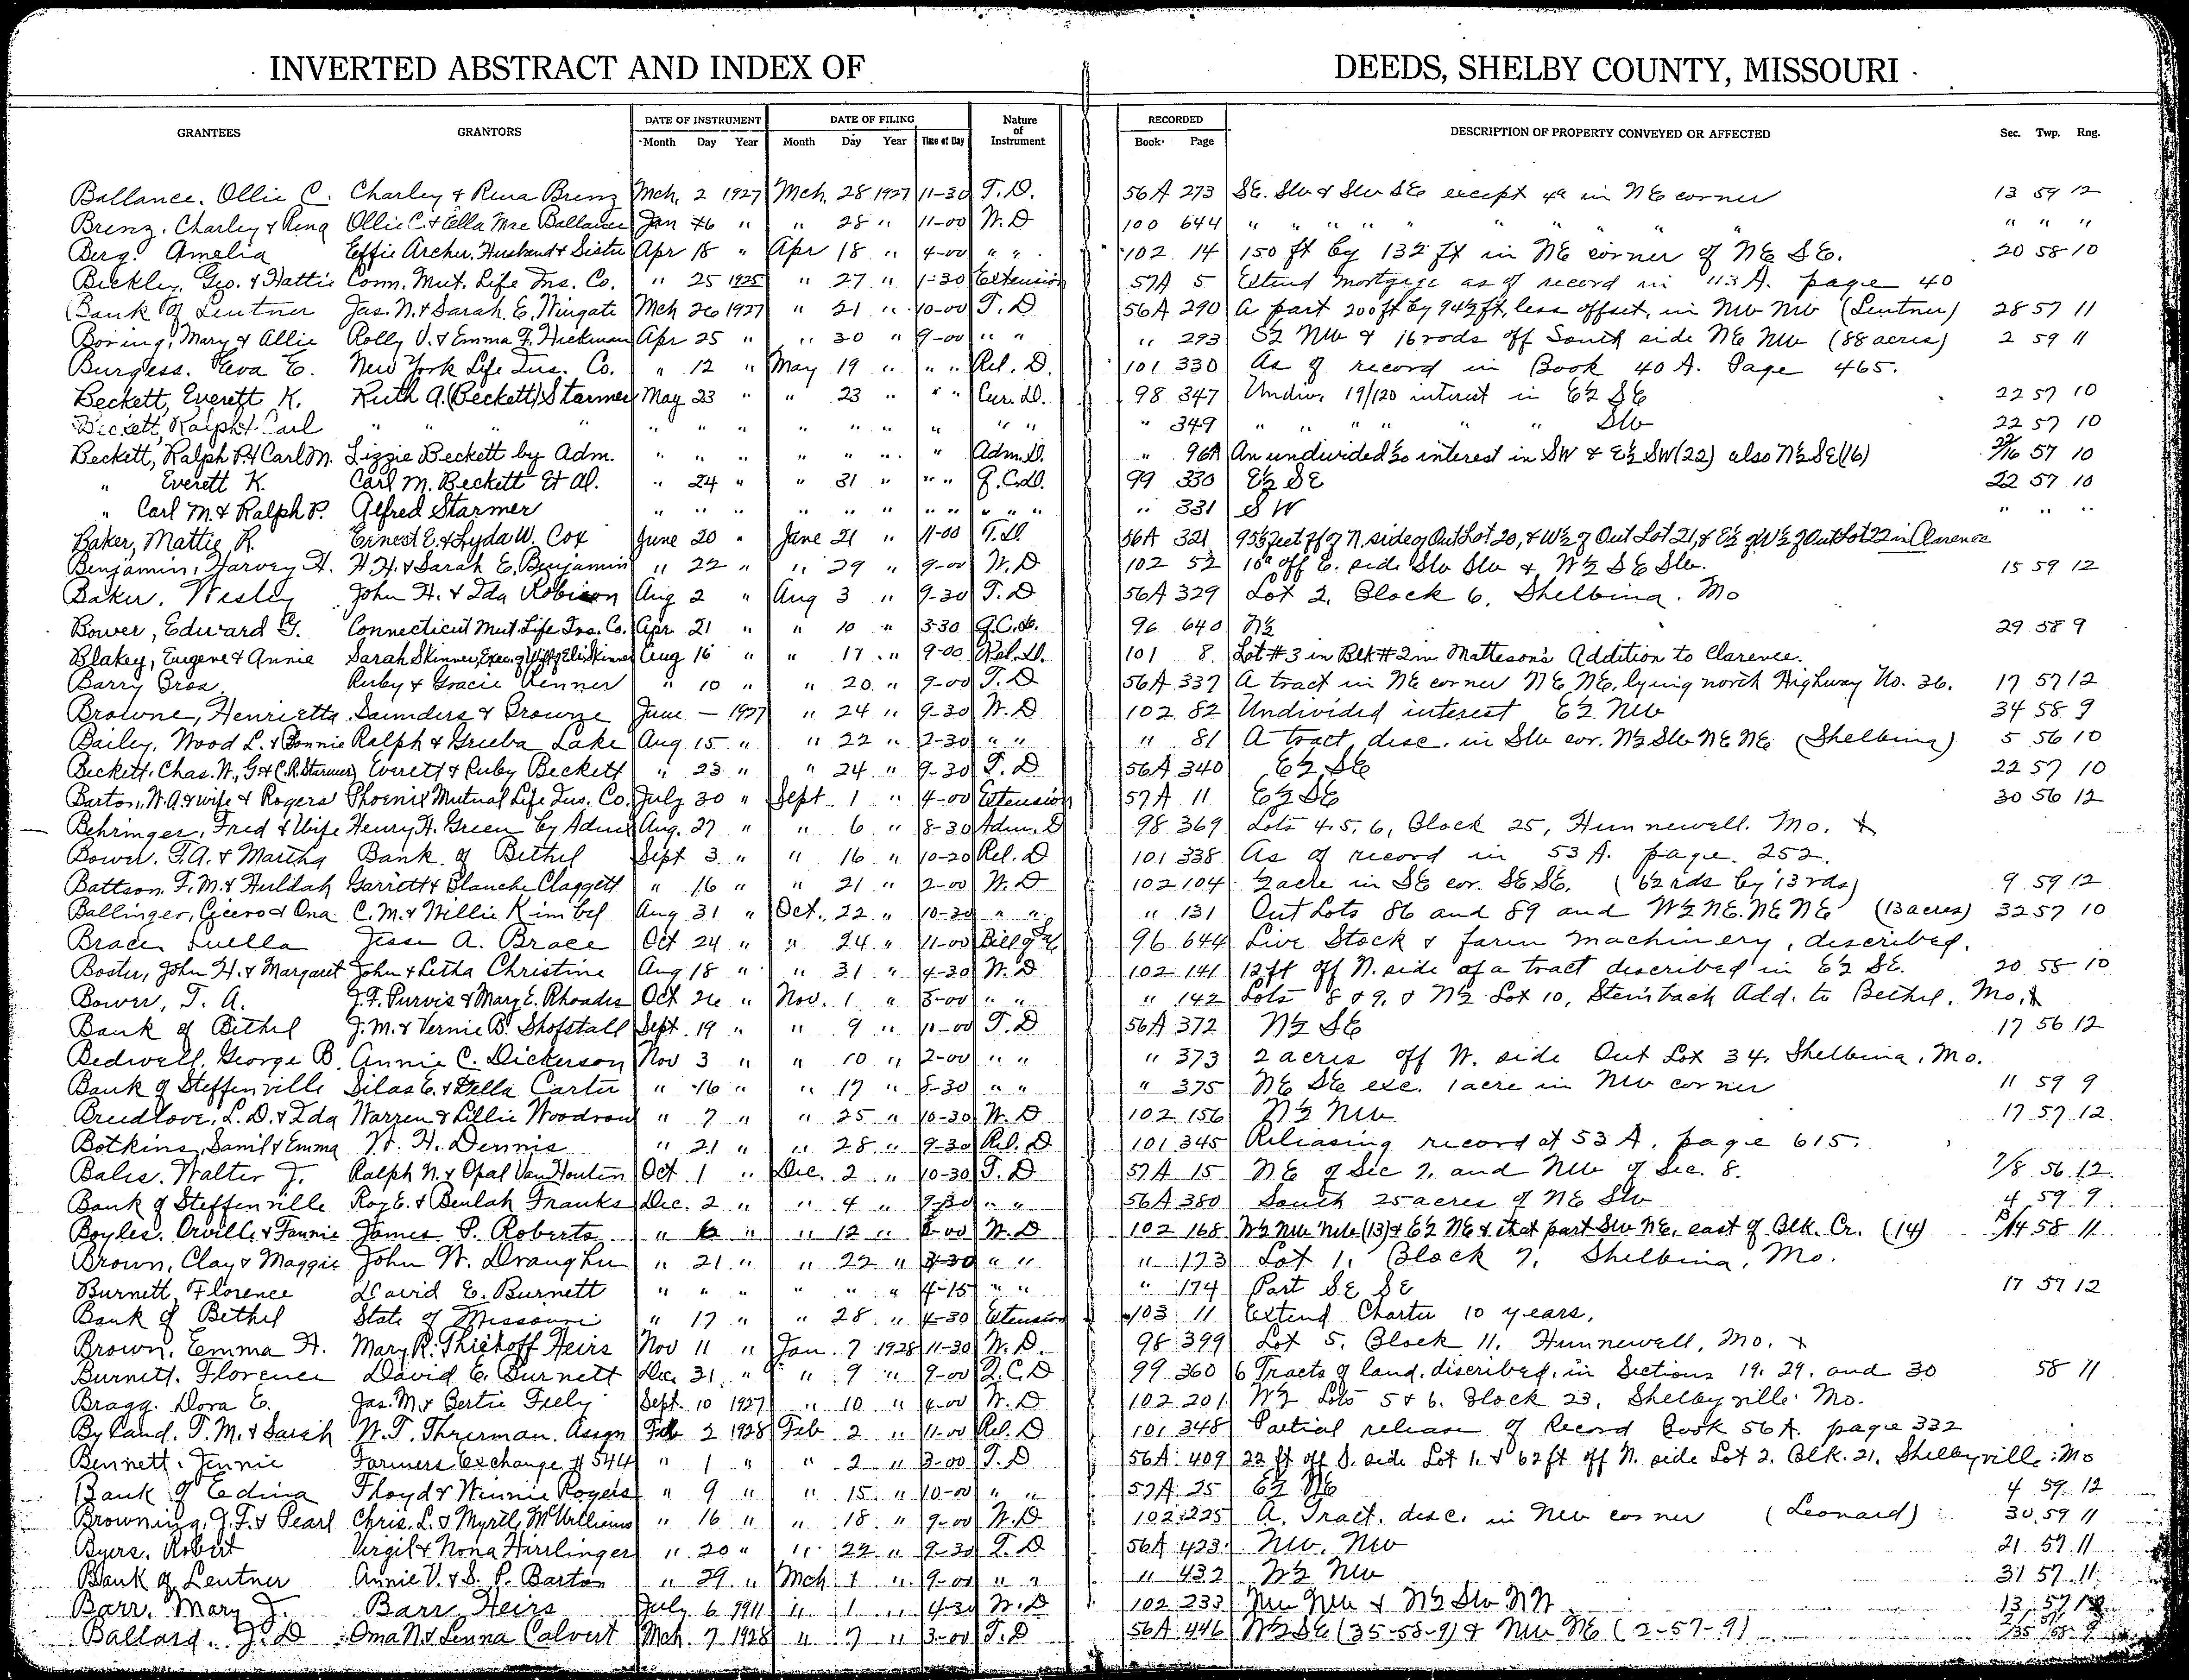 INVERTED ABSTRACT AND INDEX OF DEEDS, SHELBY COUNTY, MISSOURI
GRANTEES GRANTORS DATE OF INSTRUMENT Month Day Year DATE OF FILING Month Day Year Time of Day Nature of Instrument RECORDED Book Page DESCRIPTION OF PROPERTY CONVEYED OR AFFECTED Sec. Twp. Rng.
Ballance, Ollie C. Charley & Rena Brenz Mch. 2 1927 Mch. 28 1927 11-30 T.D. 56A 273 SE. SW & SW SE except 4a in NE corner 13 59 12
Brenz, Charley & Rena Ollie C. & Ella Mae Ballance Jan " " 28 " 11-00 W.D 100 644 " " " " " " " " " " "
Berg. Amelia Effie Archer, Husband & Sister Apr 18 " Apr 18 " 4-00 " " 102 14 150 ft by 132 ft in NE corner of NE SE. 20 58 10
Beckley, Geo. & Hattie Conn. Mut. Life Ins. Co. " 25 1925 " 27 " 1-30 Extension 57A 5 Extend mortgage as of record in 43 A. page 40
Bank of Lentner Jas. N. & Sarah E. Wingate Mch 26 1927 " 21 " 10-00 T.D 56A 290 A part 200 ft by 94½ ft, less offset, in NW NW (Lentner) 28 57 11
Boring, Mary & Allie Rolly V. & Emma F. Hickman Apr 25 " " 30 " 9-00 " " " 293 S½ NW & 16 rods off South side NE NW (88 acres) 2 59 11
Burgess. Eva E. New York Life Ins. Co. " 12 " May 19 " " " Rel. D. 101 330 As of record in Book 40 A. Page 465.
Beckett, Everett K. Ruth A. (Beckett) Starmer May 23 " " 23 " " " Cur. D. 98 347 Undiv. 19/120 interest in E½ SE 22 57 10
Beckett, Ralph & Carl " " " " " " " " " " " " " " 349 " " " " " " SW 22 57 10
Beckett, Ralph P. & Carl M. Lizzie Beckett by Adm. " " " " " " " Adm. D. " 96A An undivided interest in SW & E½ SW (22) also N½ SE (16) 22/16 57 10
" Everett K. Carl M. Beckett Et Al. " 24 " " 31 " " " Q.C.D. 99 330 E½ SE 22 57 10
" Carl M. & Ralph P. Alfred Starmer " " " " " " " " " " " 331 SW " " "
Baker, Mattie R. Ernest E. & Lyda W. Cox June 20 " June 21 " 11-00 T.D. 56A 321 95½ feet off of N. side of Out Lot 20, & W½ of Out Lot 21, & E½ of W½ of Out Lot 22 in Clarence
Benjamin, Harvey H. H.H. & Sarah E. Benjamin " 22 " " 29 " 9-00 W.D 102 52 10a off E. side SW SW & W½ SE SW. 15 59 12
Baker, Wesley John H. & Ida Robison Aug 2 " Aug 3 " 9-30 T.D 56A 329 Lot 2, Block 6, Shelbina. Mo
Bower, Edward G. Connecticut Mut. Life Ins. Co. Apr 21 " " 10 " 3-30 Q.C.D. 96 640 N½ 29 58 9
Blakey, Eugene & Annie Sarah Skinner, Exec. of Will of Eli Skinner Aug 16 " " 17 " 9-00 Rel. D. 101 8 Lot #3 in Blk #2 in Matteson's Addition to Clarence.
Barry Bros. Ruby & Gracie Renner " 10 " " 20 " 9-00 T.D 56A 337 A tract in NE corner NE NE, lying north Highway No. 36. 17 57 12
Browne, Henrietta Saunders & Browne June — 1927 " 24 " 9-30 W.D 102 82 Undivided interest E½ NW 34 58 9
Bailey, Wood L. & Bonnie Ralph & Greeba Lake Aug 15 " " 22 " 2-30 " " " 81 A tract, desc. in SW cor. N½ SW NE NE (Shelbina) 5 56 10
Beckett. Chas. W., G & C.R. Starmer Everett & Ruby Beckett " 23 " " 24 " 9-30 T.D 56A 340 E½ SE 22 57 10
Barton, W.A. & wife & Rogers Phoenix Mutual Life Ins. Co. July 30 " Sept 1 " 4-00 Extension 57A 11 E½ SE 30 56 12
Behringer, Fred & Wife Henry H. Green by Adm. Aug. 27 " " 6 " 8-30 Adm. D 98 369 Lots 4, 5, 6, Block 25, Hunnewell. Mo. x
Bower. T.A. & Martha Bank of Bethel Sept 3 " " 16 " 10-20 Rel. D 101 338 As of record in 53 A. page 252.
Battson. F.M. & Huldah Garrett & Blanche Claggett " 16 " " 21 " 2-00 W.D 102 104 ½ acre in SE cor. SE SE. (6½ rds by 13 rds) 9 59 12
Ballinger, Cicero & Ona C.M. & Willie Kimbel Aug 31 " Oct. 22 " 10-30 " " " 131 Out Lots 86 and 89 and W½ NE. NE NE (13 acres) 32 57 10
Brace, Luella Jesse A. Brace Oct 24 " " 24 " 11-00 Bill of Sale 96 644 Live Stock & farm machinery, described.
Boster, John H. & Margaret John & Letha Christine Aug 18 " " 31 " 4-30 W.D. 102 141 12 ft off N. side of a tract described in E½ SE. 20 58 10
Bower, T. A. J.F. Purvis & Mary E. Rhoades Oct 26 " Nov. 1 " 8-00 " " " 142 Lots 8 & 9, & N½ Lot 10, Steinbach Add. to Bethel, Mo. x
Bank of Bethel J.M. & Vernie B. Shofstall Sept. 19 " " 9 " 11-00 T.D 56A 372 N½ SE 17 56 12
Bedwell, George B. Annie C. Dickerson Nov 3 " " 10 " 2-00 " " " 373 2 acres off W. side Out Lot 34, Shelbina, Mo.
Bank of Steffenville Silas E. & Della Carter " 16 " " 17 " 8-30 " " " 375 NE SE exc. 1 acre in NW corner 11 59 9
Breedlove, L.D. & Ida Warren & Lillie Woodrow " 7 " " 25 " 10-30 W.D 102 156 N½ NW 17 57 12
Botkins, Saml & Emma W. H. Dennis " 21 " " 28 " 9-30 Rel. D 101 345 Releasing record at 53 A. page 615.
Bales. Walter J. Ralph N. & Opal Van Houten Oct 1 " Dec. 2 " 10-30 T.D 57A 15 NE of Sec 7, and NW of Sec. 8. 7/8 56 12
Bank of Steffenville Roy E. & Beulah Franks Dec. 2 " " 4 " 9-30 " " 56A 380 South 25 acres of NE SW 4 59 9
Boyles. Orville & Fannie James P. Roberts " 6 " " 12 " 8-00 W.D 102 168 W½ NW NW (13) & E½ NE & that part SW NE. east of Blk. Cr. (14) 13/14 58 11
Brown, Clay & Maggie John W. Draughn " 21 " " 22 " 3-30 " " " 173 Lot 1, Block 7, Shelbina, Mo.
Burnett, Florence David E. Burnett " " " " " " 4-15 " " " 174 Part SE SE 17 57 12
Bank of Bethel State of Missouri " 17 " " 28 " 4-30 Extension 103 11 Extend Charter 10 years.
Brown, Emma H. Mary R. Thiehoff Heirs Nov 11 " Jan. 7 1928 11-30 W.D. 98 399 Lot 5, Block 11, Hunnewell, Mo. x
Burnett. Florence David E. Burnett Dec. 31 " " 9 " 9-00 Q.C.D 99 360 6 Tracts of land, discribed, in Sections 19. 29. and 30 58 11
Bragg. Dora E. Jas. M. & Bertie Feely Sept. 10 1927 " 10 " 4-00 W.D 102 201 W½ Lots 5 & 6. Block 23, Shelbyville Mo.
Byland. T.M. & Sarah W.T. Thrurman. Assgn Feb 2 1928 Feb 2 " 11-00 Rel. D 101 348 Partial release of Record Book 56A. page 332
Bennett. Jennie Farmers Exchange #544 " 1 " " 2 " 3-00 T.D 56A 409 22 ft off S. side Lot 1. & 62 ft off N. side Lot 2. Blk. 21. Shelbyville Mo
Bank of Edina Floyd & Winnie Rogers " 9 " " 15 " 10-00 " " 57A 25 E½ NE 4 59 12
Browning, J.F. & Pearl Chris. L. & Myrtle McWilliams " 16 " " 18 " 9-00 W.D 102 225 A. Tract. desc. in NW corner (Leonard) 30 59 11
Byers. Robert Virgil & Nona Hirrlinger " 20 " " 22 " 9-30 T.D 56A 423 NW. NW 21 57 11
Bank of Lentner Annie V. & S. P. Barton " 29 " Mch 1 " 9-00 " " " 432 W½ NW 31 57 11
Barr, Mary J. Barr Heirs July 6 1911 " 1 " 4-30 W.D 102 233 NW NW & N½ SW NW 13 57
Ballard. J. D Oma N & Lenna Calvert Mch 7 1928 " 7 " 3-00 T.D 56A 446 W½ SE (35-58-9) & NW NE (2-57-9)